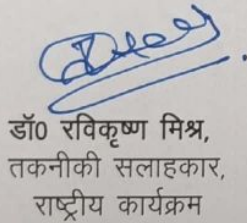 डॉ0 रविकृष्ण मिश्र,
तकनीकी सलाहकार,
राष्ट्रीय कार्यक्रम